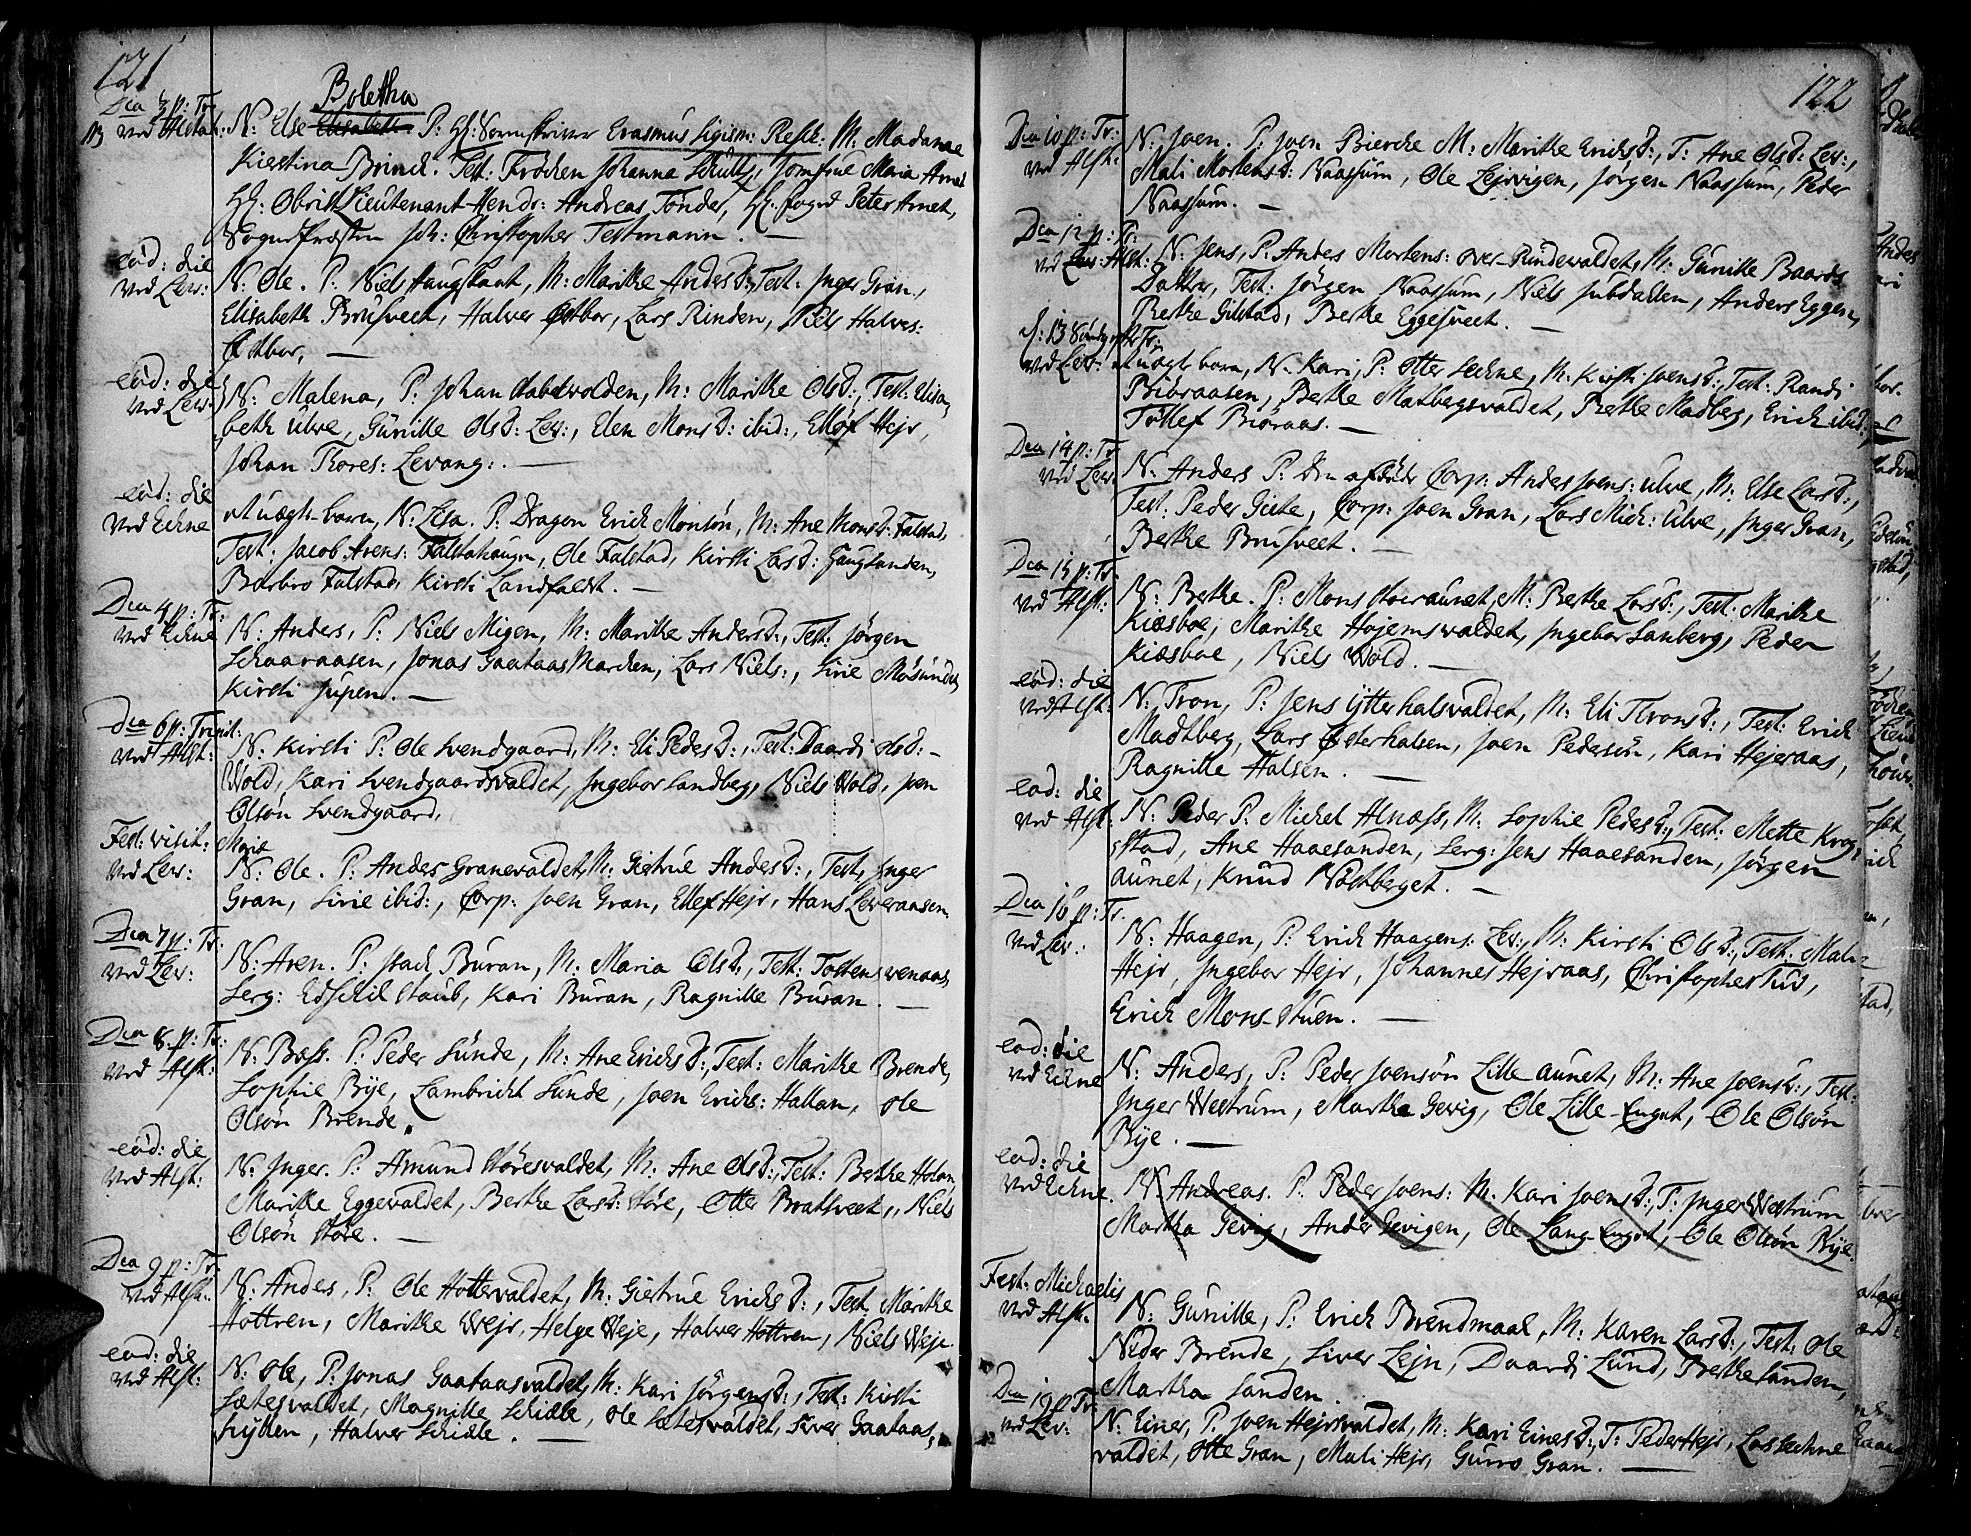 121
Boletha
Dca 3 p: Tr:
NB ved Alstah: N: Else Elisabeth P: Hr: Sorenskriver Erasmus Sigism: Resch: M: Madame
Kierstina Brinck. Test: Fröcken Johanna Schultz, Jomfrue Maria Arnet
Hr: Obristl Lieutenant Hendr: Andreas Tönder, Hr. Fogd Peter Arnet,
Sognepræsten Joh: Christopher Testmann. —
eod: die
ved Lev:
N: Ole. P: Niels Haugstaat, M: Maritke Anders D:, Test: Inger Gran,
Elisabeth Brusveet, Halver Östbor, Lars Rinden, Niels Halvers:
Östbor, —
eod: die
ved Lev:
N: Malena, P: Johan Stabelvolden, M: Maritke Ols D:, Test: Elisa,
beth Ulve, Gunille Ols D: Lev:, Elen Mons D: ibid:, Ellof Hejr,
Johan Thores: Levang:. —
eod: die
ved Eckne
et uægte barn, N: Lisa. P: Dragon Erich Monsön, M: Ane Mons D: Falstad,
Test: Jacob Arens: Falstahaugen, Ole Falstad, Kirsti Lars D: Hauglanden,
Barbro Falstad, Kirsti Landfaldt. —
Dca 4 p: Tr:
ved Eckne
N: Anders, P: Niels Migen, M: Maritke Anders D:, Test: Jörgen
Schaaraasen, Jonas Gaataas Marcken, Lars Niels:, Sirie Mösunde,
Kirsti Jupen. —
Dca 6 p: Trinit:
ved Alst:
N: Kirsti P: Ole Svendgaard, M: Eli Peders D:, Test: Daardi Ols D:
Wold, Kari Svendgaardsvaldet, Ingebor Landberg, Niels Wold, Joen
Olsön Svendgaard,
Fest: visit: Mariæ
ved Lev:
N: Ole. P: Anders Granevaldet, M: Giertrue Anders D:, Test, Inger
Gran, Sirie ibid:, Corp: Joen Gran, Ellef Hejr, Hans Leveraasen
Dca 7 p: Tr:
ved Lev:
N: Aren. P: Isach Buran, M: Maria Ols D:, Test: Tosten Svenaas,
Serg: Edschil Staub, Kari Buran, Ragnille Buran. —
Dca 8. p: Tr:
ved Alst:
N: Bass. P: Peder Sunde, M: Ane Erichs D:, Test: Maritke Brende,
Sophie Rye, Lambricht Sunde, Joen Erichs: Hallan, Ole
Olsön Brende.
eod: die
ved Alst:
N: Inger. P: Amund Störesvaldet, M: Ane Ols D:, Test: Berthe Holan,
Maritke Eggevaldet, Berthe Lars D: Störe, Otter Brattveet, Niels
Olsön Störe. —
Dca 9 p: Tr:
ved Alst:
N: Anders, P: Ole Hottervaldet, M: Giertrue Erichs D:, Test, Maritke
Hottren, Maritke Wejr, Helge Weje, Halver Hottren, Niels Weje
eod: die
ved Alst:
N: Ole, P: Jonas Gaataasvaldet, M: Kari Jörgens D:, Test: Kirsti
Sætesvaldet, Magnille Schiele, Ole Sætesvaldet, Siver Gaataas,
, Halver Schiele. —
122
Dca 10 p: Tr:
ved Alst:
N: Joen. P: Joen Biercke M: Maritke Erichs D:, T: Ane Ols D: Lev:,
Mali Mortens D: Naassum, Ole Lejrvigen, Jörgen Naassum, Peder
Naassum. —
Dca 12 p: Tr:
ved Lev: Alst: N: Jens, P: Anders Mortens: over-Rindevaldet, M: Gunille Baards
Datter, Test: Jörgen Naassum, Niels Jubdahlen, Anders Eggen,
Berthe Gilstad, Berthe Eggesveet. —
d: 13 Söndag efter Tr:
ved Lev: et uægte barn, N: Kari, P: Otter Eckne, M: Kirsti Joens D:, Test: Randi
Biöraasen, Berthe Matbergsvaldet, Berthe Madberg, Erich ibid:,
Tollef Biöraas. —
Dca 14 p: Tr:
ved Lev:
N: Anders P: Den afdöde Corp: Anders Joens: Ulve, M: Else Lars D:,
Test: Peder Giete, Corp: Joen Gran, Lars Mich: Ulve, Inger Gran,
Berthe Brusveet. —
Dca 15 p: Tr.
ved Alst:
N: Berthe. P: Mons Stoeraunet, M: Berthe Lars D:, Test: Maritke
Kiæsboe, Maritke Hojemsvaldet, Ingebor Lanberg, Peder
Kiæsboe, Niels Wold. —
eod: die
ved Alst:
N: Tron, P: Jens Ytterhalsvaldet, M: Eli Throns D:, Test: Erich
Madtberg, Lars Österhalsen, Joen Pedersön, Kari Hejeraas,
Ragnille Halsen. —
eod: die
ved Alst.
N: Peder P: Michel Alnæss, M: Sophie Peders D:, Test: Mette Krog,
stad, Ane Haaesanden, Serg: Jens Haaesanden, Jörgen
aunet, Knud Nöstberget. —
Dca 16 p: Tr.
ved Lev:
N: Haagen, P: Erich Haagens: Lev:, M: Kirsti Ols D:, Test: Mali
Hejr, Ingebor Hejr, Johannes Hejraas, Christopher Lud,
Erich Mons-Stuen. —
eod: die
ved Eckne
N: Anders, P: Peder Joensön Lille aunet, M: Ane Joens D:, Test:
Inger Westrum, Martha Gevig, Ole Lille-Enget, Ole Olsön
Rye. —
eod: die
ved Eckne.
N: Andreas. P: Peder Joens: M: Kari Joens D:, T: Inger Westrum
Martha Gevig, Ander Gevigen, Ole Lang-Enget, Ole Olsön Rye.
Fest: Michaelis
ved Alst:
N: Gunille, P: Erich Brendmaal, M: Karen Lars D:, Test: Ole
Neder Brende, Siver Lejn, Daardi Lund, Berthe Sanden,
Martha Sanden.
Dca 19 p Tr:
ved Lev:
N: Einer, P: Joen Hejrsvaldet, M: Kari Einers D:, T: Peder Hejr, Lars Eckne
valdet, Otte Gran, Mali Hejr, Guro Gran. —